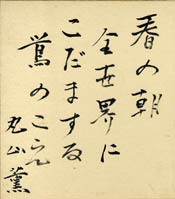 春の朝
全世界に
こだまする
鶯のこえ
丸山薫